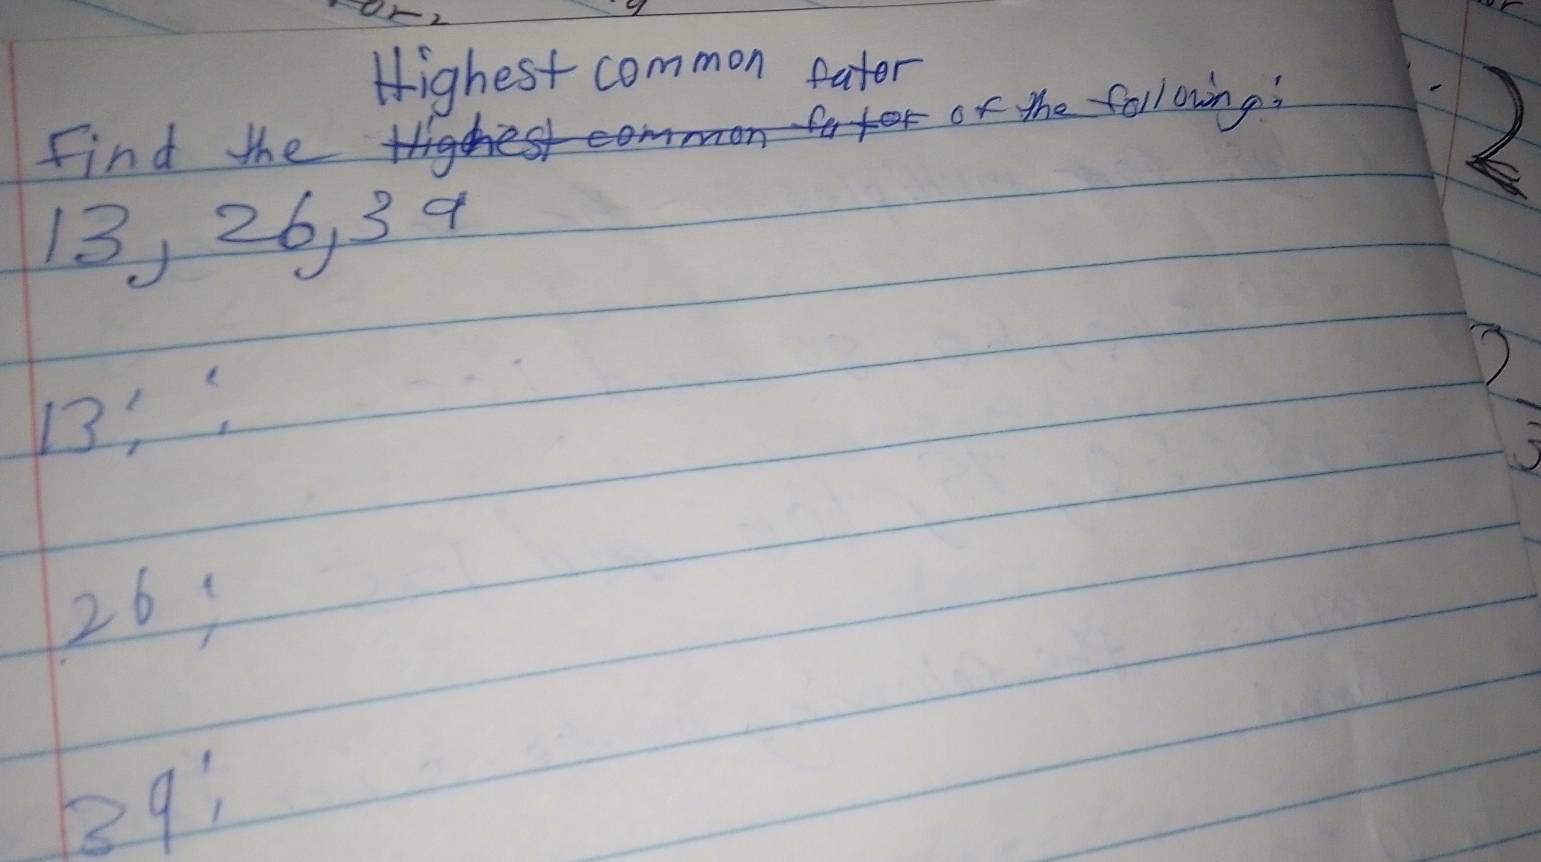 Highest common fator
Find the Highest common fator of the following:
13, 26, 39
13:
26:
39: